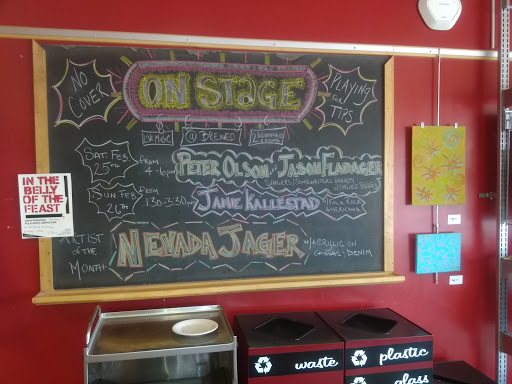 NO COVER
ON STAGE
PLAYING for TIPS
@ BREWED
SAT. FEB. 25TH
from 4-6pm
PETER OLSON JASON FLADAGER
SUN FEB 26TH
from 130-3:30pm
JANIE KALLESTAD
FOLK ROCK
AMERICANA
ARTIST of the MONTH
NEVADA JAGER
w/ ACRYLIC ON
CANVAS + DENIM
IN THE
BELLY
OF THE
FEAST
waste
plastic
glass